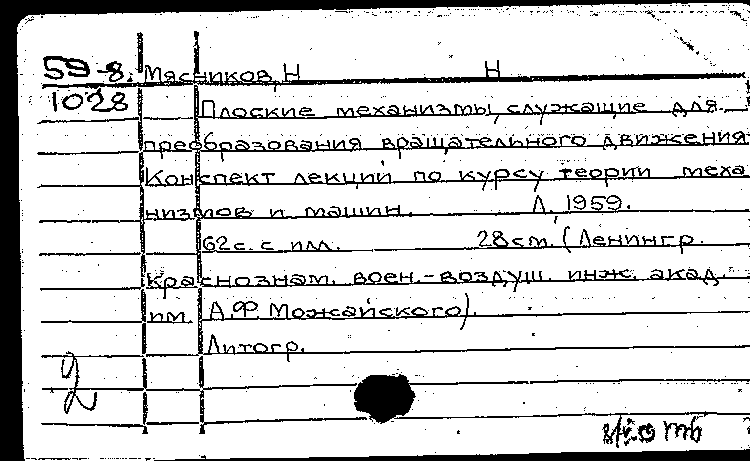 59-8. Мясников, Н Н
1028 Плоские механизмы, служащие для
преобразования вращательного движения
Конспект лекций по курсу теории меха
низмов и машин. Л, 1959.
62с. с илл. 28см. (Ленингр.
краснознам. воен.-воздуш. инж. акад.
им. А.Ф Можайского).
Литогр.
2